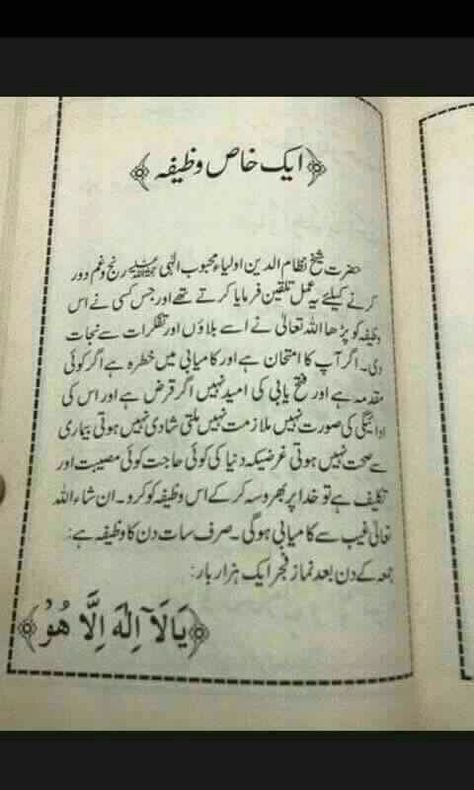 ایک خاص وظیفہ
حضرت شیخ نظام الدین اولیاء محبوب الٰہی رنج و غم دور
کرنے کیلئے یہ عمل تلقین فرمایا کرتے تھے اور جس کسی نے اس
وظیفہ کو پڑھا اللہ تعالیٰ نے اسے بلاؤں اور تفکرات سے نجات
دی۔ اگر آپ کا امتحان ہے اور کامیابی میں خطرہ ہے اگر کوئی
مقدمہ ہے اور فتح یابی کی امید نہیں اگر قرض ہے اور اس کی
ادائیگی کی صورت نہیں ملازمت نہیں ملتی شادی نہیں ہوتی بیماری
سے صحت نہیں ہوتی غرضیکہ دنیا کی کوئی حاجت کوئی مصیبت اور
تکلیف ہے تو خدا پر بھروسہ کر کے اس وظیفہ کو کرو۔ ان شاء اللہ
تعالیٰ غیب سے کامیابی ہوگی۔ صرف سات دن کا وظیفہ ہے:
جمعہ کے دن بعد نماز فجر ایک ہزار بار:
يَا لَآ اِلٰهَ اِلَّا هُوْ